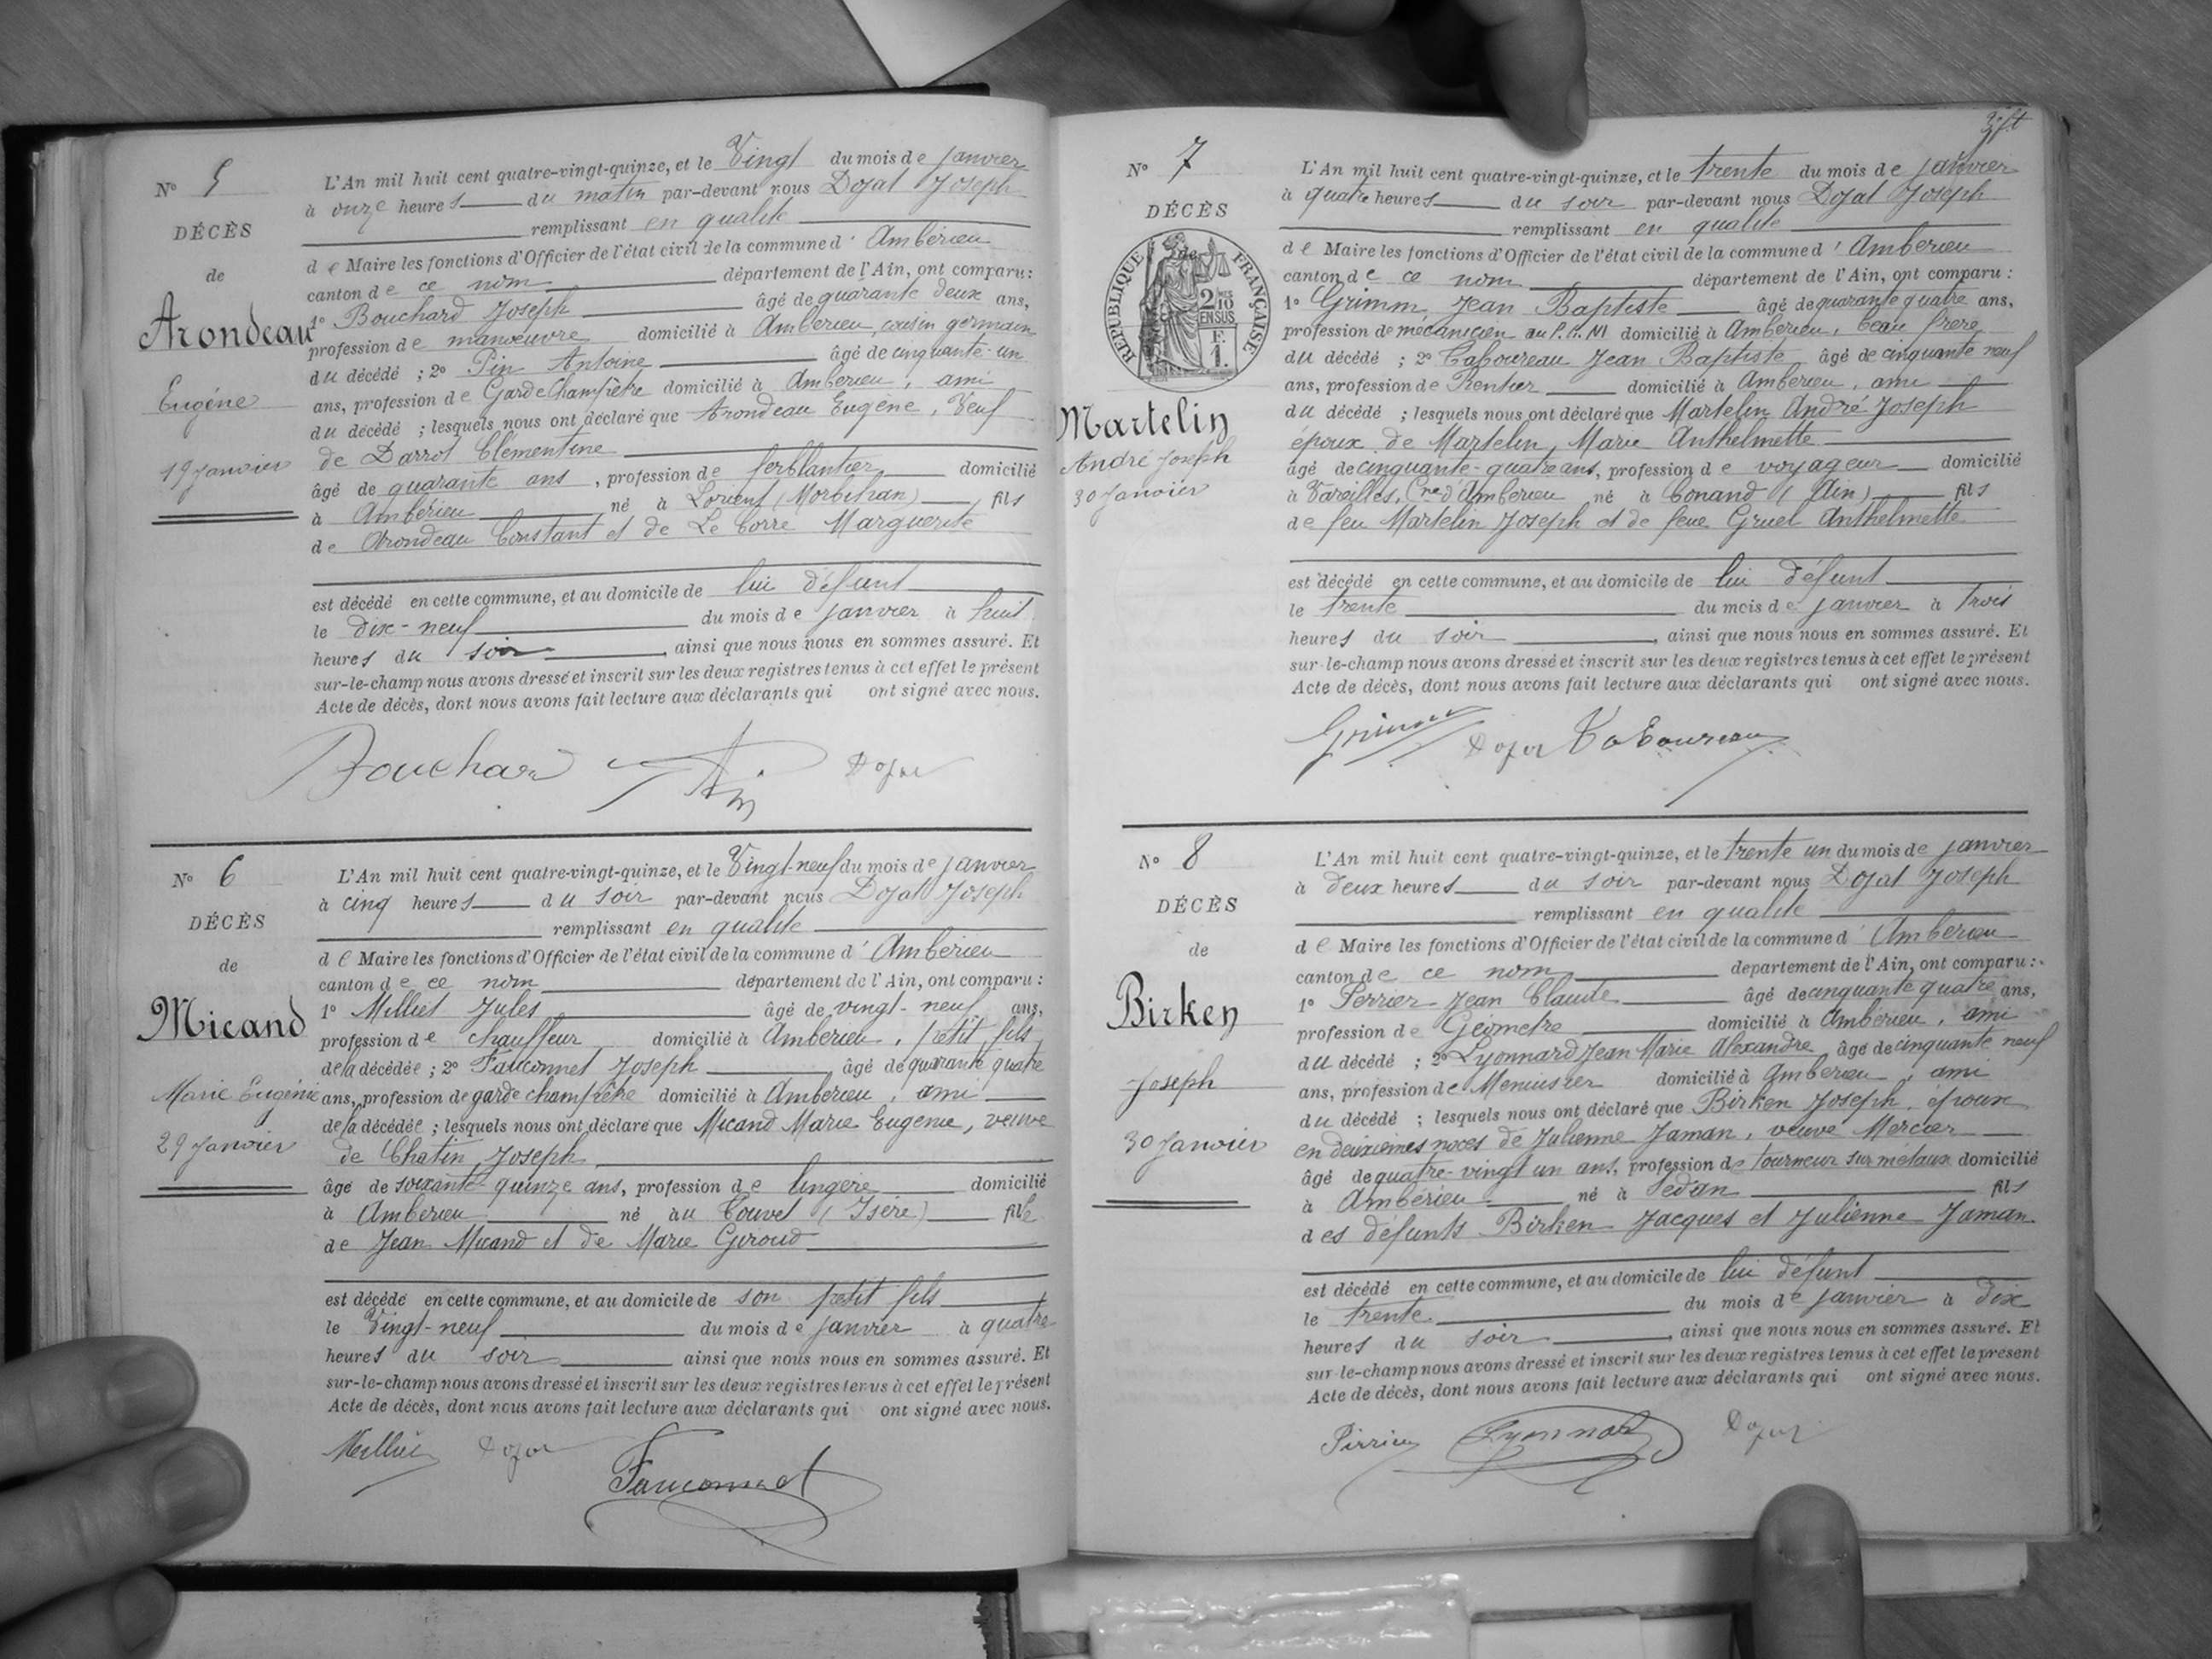 N° 5
DÉCÈS
de
Arondeau
Eugène
19 Janvier
L'An mil huit cent quatre-vingt-quinze, et le Vingt du mois de Janvier
à onze heures du matin par-devant nous Dojat Joseph
remplissant en qualité
de Maire les fonctions d'Officier de l'état civil de la commune d'Ambérieu
canton de ce nom département de l'Ain, ont comparu :
1° Bouchard Joseph âgé de quarante deux ans,
profession de manœuvre domicilié à Ambérieu, cousin germain
du décédé ; 2° Pin Antoine âgé de cinquante-un
ans, profession de Garde Champêtre domicilié à Ambérieu, ami
du décédé ; lesquels nous ont déclaré que Arondeau Eugène, Veuf
de Darrot Clémentine
âgé de quarante ans, profession de ferblantier domicilié
à Ambérieu né à Lorient (Morbihan) fils
de Arondeau Constant et de Le Corre Marguerite
est décédé en cette commune, et au domicile de lui défunt
le dix-neuf du mois de Janvier à huit
heures du soir, ainsi que nous nous en sommes assuré. Et
sur-le-champ nous avons dressé et inscrit sur les deux registres tenus à cet effet le présent
Acte de décès, dont nous avons fait lecture aux déclarants qui ont signé avec nous.
Bouchard Pin Dojat
N° 6
DÉCÈS
de
Micand
Marie Eugénie
29 Janvier
L'An mil huit cent quatre-vingt-quinze, et le Vingt-neuf du mois de Janvier
à cinq heures du soir par-devant nous Dojat Joseph
remplissant en qualité
de Maire les fonctions d'Officier de l'état civil de la commune d'Ambérieu
canton de ce nom département de l'Ain, ont comparu :
1° Milliet Jules âgé de vingt-neuf ans,
profession de chauffeur domicilié à Ambérieu, petit fils
de la décédée ; 2° Fauconnet Joseph âgé de quarante quatre
ans, profession de garde champêtre domicilié à Ambérieu, ami
de la décédée ; lesquels nous ont déclaré que Micand Marie Eugénie, veuve
de Chatin Joseph
âgé de soixante-quinze ans, profession de lingère domicilié
à Ambérieu né au Touvet (Isère) fille
de Jean Micand et de Marie Giroud
est décédé en cette commune, et au domicile de son petit fils
le Vingt-neuf du mois de Janvier à quatre
heures du soir ainsi que nous nous en sommes assuré. Et
sur-le-champ nous avons dressé et inscrit sur les deux registres tenus à cet effet le présent
Acte de décès, dont nous avons fait lecture aux déclarants qui ont signé avec nous.
Milliet Dojat
Fauconnet
N° 7
DÉCÈS
de
RÉPUBLIQUE FRANÇAISE
2/10 EN SUS
F. 1.
Martelin
André Joseph
30 Janvier
L'An mil huit cent quatre-vingt-quinze, et le trente du mois de Janvier
à quatre heures du soir par-devant nous Dojat Joseph
remplissant en qualité
de Maire les fonctions d'Officier de l'état civil de la commune d'Ambérieu
canton de ce nom département de l'Ain, ont comparu :
1° Grimm Jean Baptiste âgé de quarante quatre ans,
profession de mécanicien au P.L.M domicilié à Ambérieu, beau frère
du décédé ; 2° Taboureau Jean Baptiste âgé de cinquante neuf
ans, profession de Rentier domicilié à Ambérieu, ami
du décédé ; lesquels nous ont déclaré que Martelin André Joseph
époux de Martelin, Marie Anthelmette
âgé de cinquante-quatre ans, profession de voyageur domicilié
à Vareilles, Cne d'Ambérieu né à Conand (Ain) fils
de feu Martelin Joseph et de feue Gruel Anthelmette
est décédé en cette commune, et au domicile de lui défunt
le trente du mois de Janvier à trois
heures du soir, ainsi que nous nous en sommes assuré. Et
sur-le-champ nous avons dressé et inscrit sur les deux registres tenus à cet effet le présent
Acte de décès, dont nous avons fait lecture aux déclarants qui ont signé avec nous.
Grimm Dojat Taboureau
N° 8
DÉCÈS
de
Birken
Joseph
30 Janvier
L'An mil huit cent quatre-vingt-quinze, et le trente un du mois de Janvier
à deux heures du soir par-devant nous Dojat Joseph
remplissant en qualité
de Maire les fonctions d'Officier de l'état civil de la commune d'Ambérieu
canton de ce nom département de l'Ain, ont comparu :
1° Perrier Jean Claude âgé de cinquante quatre ans,
profession de Géomètre domicilié à Ambérieu, ami
du décédé ; 2° Lyonnard Jean Marie Alexandre âgé de cinquante neuf
ans, profession de Menuisier domicilié à Ambérieu, ami
du décédé ; lesquels nous ont déclaré que Birken Joseph, époux
en deuxièmes noces de Julienne Jaman, veuve Mercier
âgé de quatre-vingt un ans, profession de tourneur sur métaux domicilié
à Ambérieu né à Sedan fils
des défunts Birken Jacques et Julienne Jaman
est décédé en cette commune, et au domicile de lui défunt
le trente du mois de Janvier à dix
heures du soir, ainsi que nous nous en sommes assuré. Et
sur-le-champ nous avons dressé et inscrit sur les deux registres tenus à cet effet le présent
Acte de décès, dont nous avons fait lecture aux déclarants qui ont signé avec nous.
Perrier Lyonnard Dojat